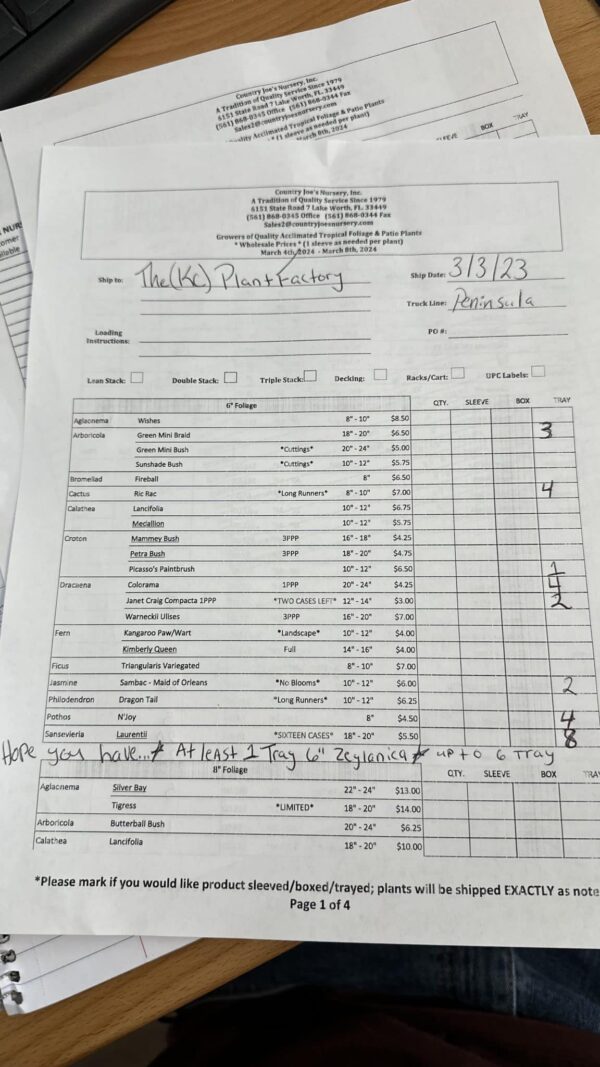 Country Joe's Nursery, Inc.
A Tradition of Quality Service Since 1979
6151 State Road 7 Lake Worth, FL. 33449
(561) 868-0345 Office (561) 868-0344 Fax
Sales2@countryjoesnursery.com
Quality Acclimated Tropical Foliage & Patio Plants
* (1 sleeve as needed per plant)
March 8th, 2024
SLEEVE BOX TRAY
Country Joe's Nursery, Inc.
A Tradition of Quality Service Since 1979
6151 State Road 7 Lake Worth, FL. 33449
(561) 868-0345 Office (561) 868-0344 Fax
Sales2@countryjoesnursery.com
Growers of Quality Acclimated Tropical Foliage & Patio Plants
* Wholesale Prices * (1 sleeve as needed per plant)
March 4th, 2024 - March 8th, 2024
Ship to: The (KC) Plant Factory Ship Date: 3/3/23
Truck Line: Peninsula
Loading Instructions: PO #:
Lean Stack: Double Stack: Triple Stack: Decking: Racks/Cart: UPC Labels:
6" Foliage QTY. SLEEVE BOX TRAY
Aglaonema Wishes 8" - 10" $8.50
Arboricola Green Mini Braid 18" - 20" $6.50 3
Green Mini Bush *Cuttings* 20" - 24" $5.00
Sunshade Bush *Cuttings* 10" - 12" $5.75
Bromeliad Fireball 8" $6.50
Cactus Ric Rac *Long Runners* 8" - 10" $7.00 4
Calathea Lancifolia 10" - 12" $6.75
Medallion 10" - 12" $5.75
Croton Mammey Bush 3PPP 16" - 18" $4.25
Petra Bush 3PPP 18" - 20" $4.75
Picasso's Paintbrush 10" - 12" $6.50 1
Dracaena Colorama 1PPP 20" - 24" $4.25 4
Janet Craig Compacta 1PPP *TWO CASES LEFT* 12" - 14" $3.00 2
Warneckii Ulises 3PPP 16" - 20" $7.00
Fern Kangaroo Paw/Wart *Landscape* 10" - 12" $4.00
Kimberly Queen Full 14" - 16" $4.00
Ficus Triangularis Variegated 8" - 10" $7.00
Jasmine Sambac - Maid of Orleans *No Blooms* 10" - 12" $6.00 2
Philodendron Dragon Tail *Long Runners* 10" - 12" $6.25
Pothos N'Joy 8" $4.50 4
Sansevieria Laurentii *SIXTEEN CASES* 18" - 20" $5.50 8
Hope you have...* At least 1 Tray 6" Zeylanica * up to 6 Tray
8" Foliage QTY. SLEEVE BOX TRA
Aglaonema Silver Bay 22" - 24" $13.00
Tigress *LIMITED* 18" - 20" $14.00
Arboricola Butterball Bush 20" - 24" $6.25
Calathea Lancifolia 18" - 20" $10.00
*Please mark if you would like product sleeved/boxed/trayed; plants will be shipped EXACTLY as note
Page 1 of 4